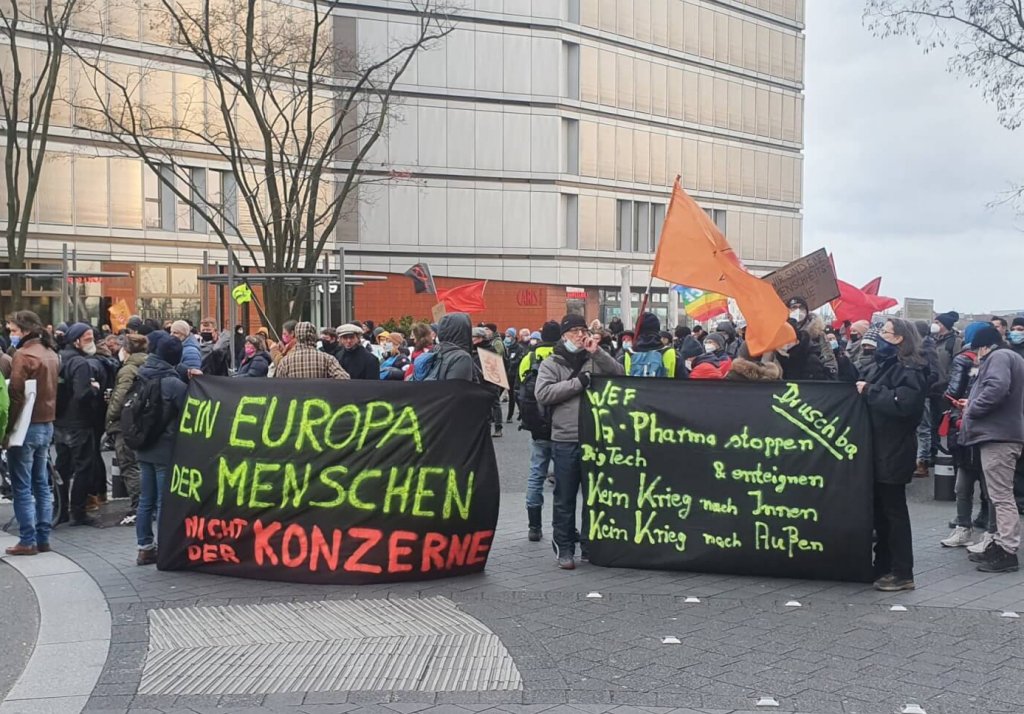 EIN EUROPA
DER MENSCHEN
NICHT
DER KONZERNE
WEF
IG-Pharma stoppen
BigTech & enteignen
Kein Krieg nach Innen
Kein Krieg nach Außen
Druschba